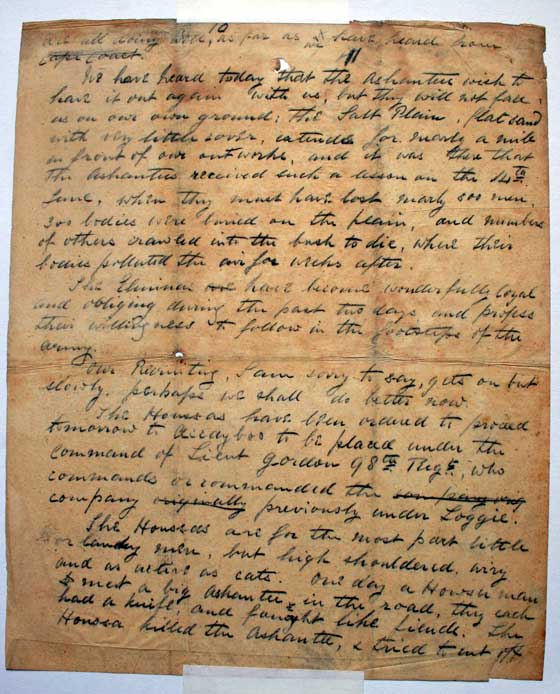 10
are all doing well, as far as we have heard from
Cape Coast.
We have heard today that the Ashantees wish to
have it out again with us, but they will not face
us on our own ground; the Salt Plain, flat sand
with very little cover, extends for nearly a mile
in front of our outworks, and it was there that
the Ashantees received such a lesson on the 14th
June, when they must have lost nearly 800 men,
300 bodies were buried on the plain, and numbers
of others crawled into the bush to die, where their
bodies polluted the air for weeks after.
The Elminas are have become wonderfully loyal
and obliging during the past two days and profess
their willingness to follow in the footsteps of the
army.
Our Recruiting, I am sorry to say, gets on but
slowly. perhaps we shall do better now
The Houssas have been ordered to proceed
tomorrow to to be placed under the
command of Lieut Gordon 98th Regt, who
commands or commanded the
company originally previously under Loggie.
The Houssas are for the most part little
men, but high shouldered, wiry
and as active as cats. One day a Howsa man
met a big Ashantee in the road, they each
had a knife, and fought like fiends. The
Houssa killed the Ashantee, & tried to cut off